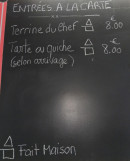 ENTRÉES À LA CARTE
Terrine du Chef 8.00 €
Tarte ou quiche 8.00 €
(selon arrivage)
Fait Maison